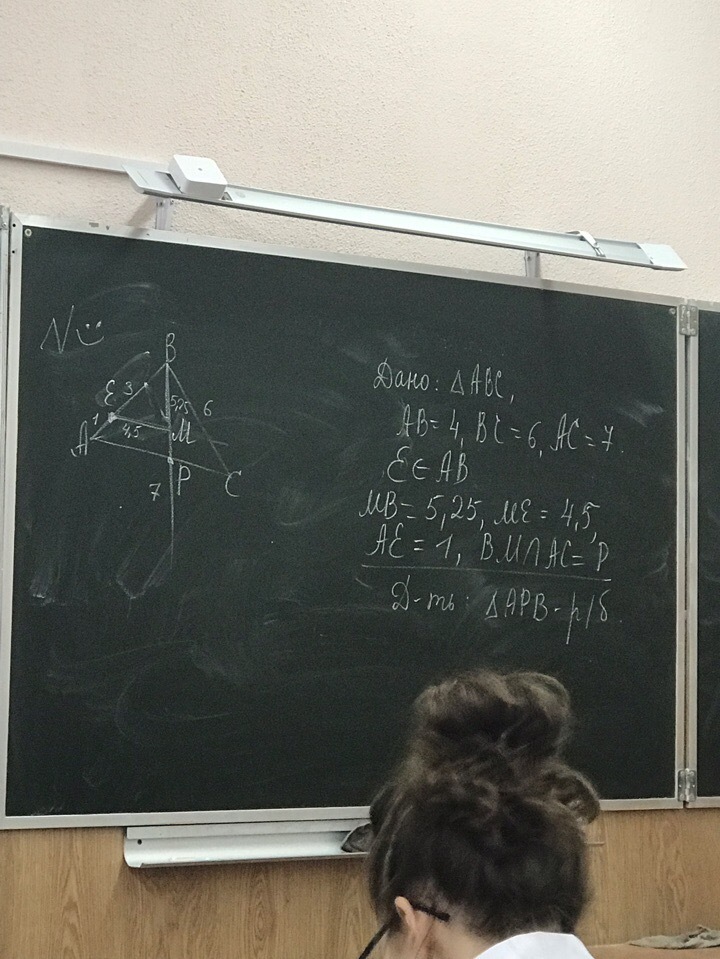 N
B
E 3 5,25 6
1 4,5 M
A
7 P C
Дано: △ABC,
AB = 4, BC = 6, AC = 7.
E ∈ AB
MB = 5,25, ME = 4,5,
AE = 1, BM ∩ AC = P
Д-ть: △APB - р/б.